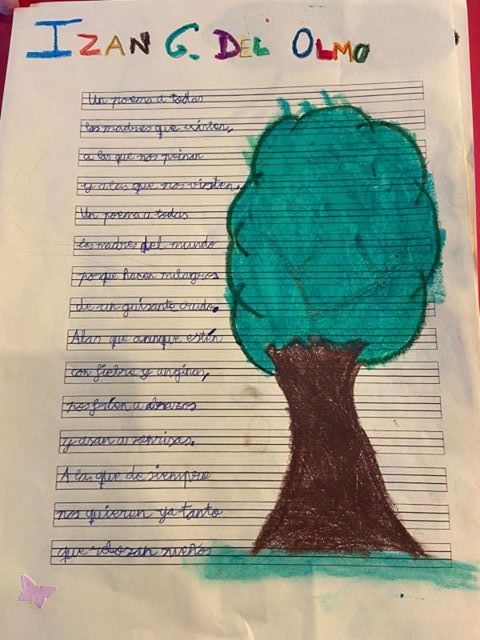 IZAN G. DEL OLMO
Un poema a todas
las madres que existen,
a las que nos peinan
y a las que nos visten.
Un poema a todas
las madres del mundo
po que hacen milagros
de un guisante crudo.
A las que aunque estén
con fiebre y anginas,
nos fríen a abrazos
y asan a sonrisas.
A las que de siempre
nos quieren ya tanto
que rebozan sueños